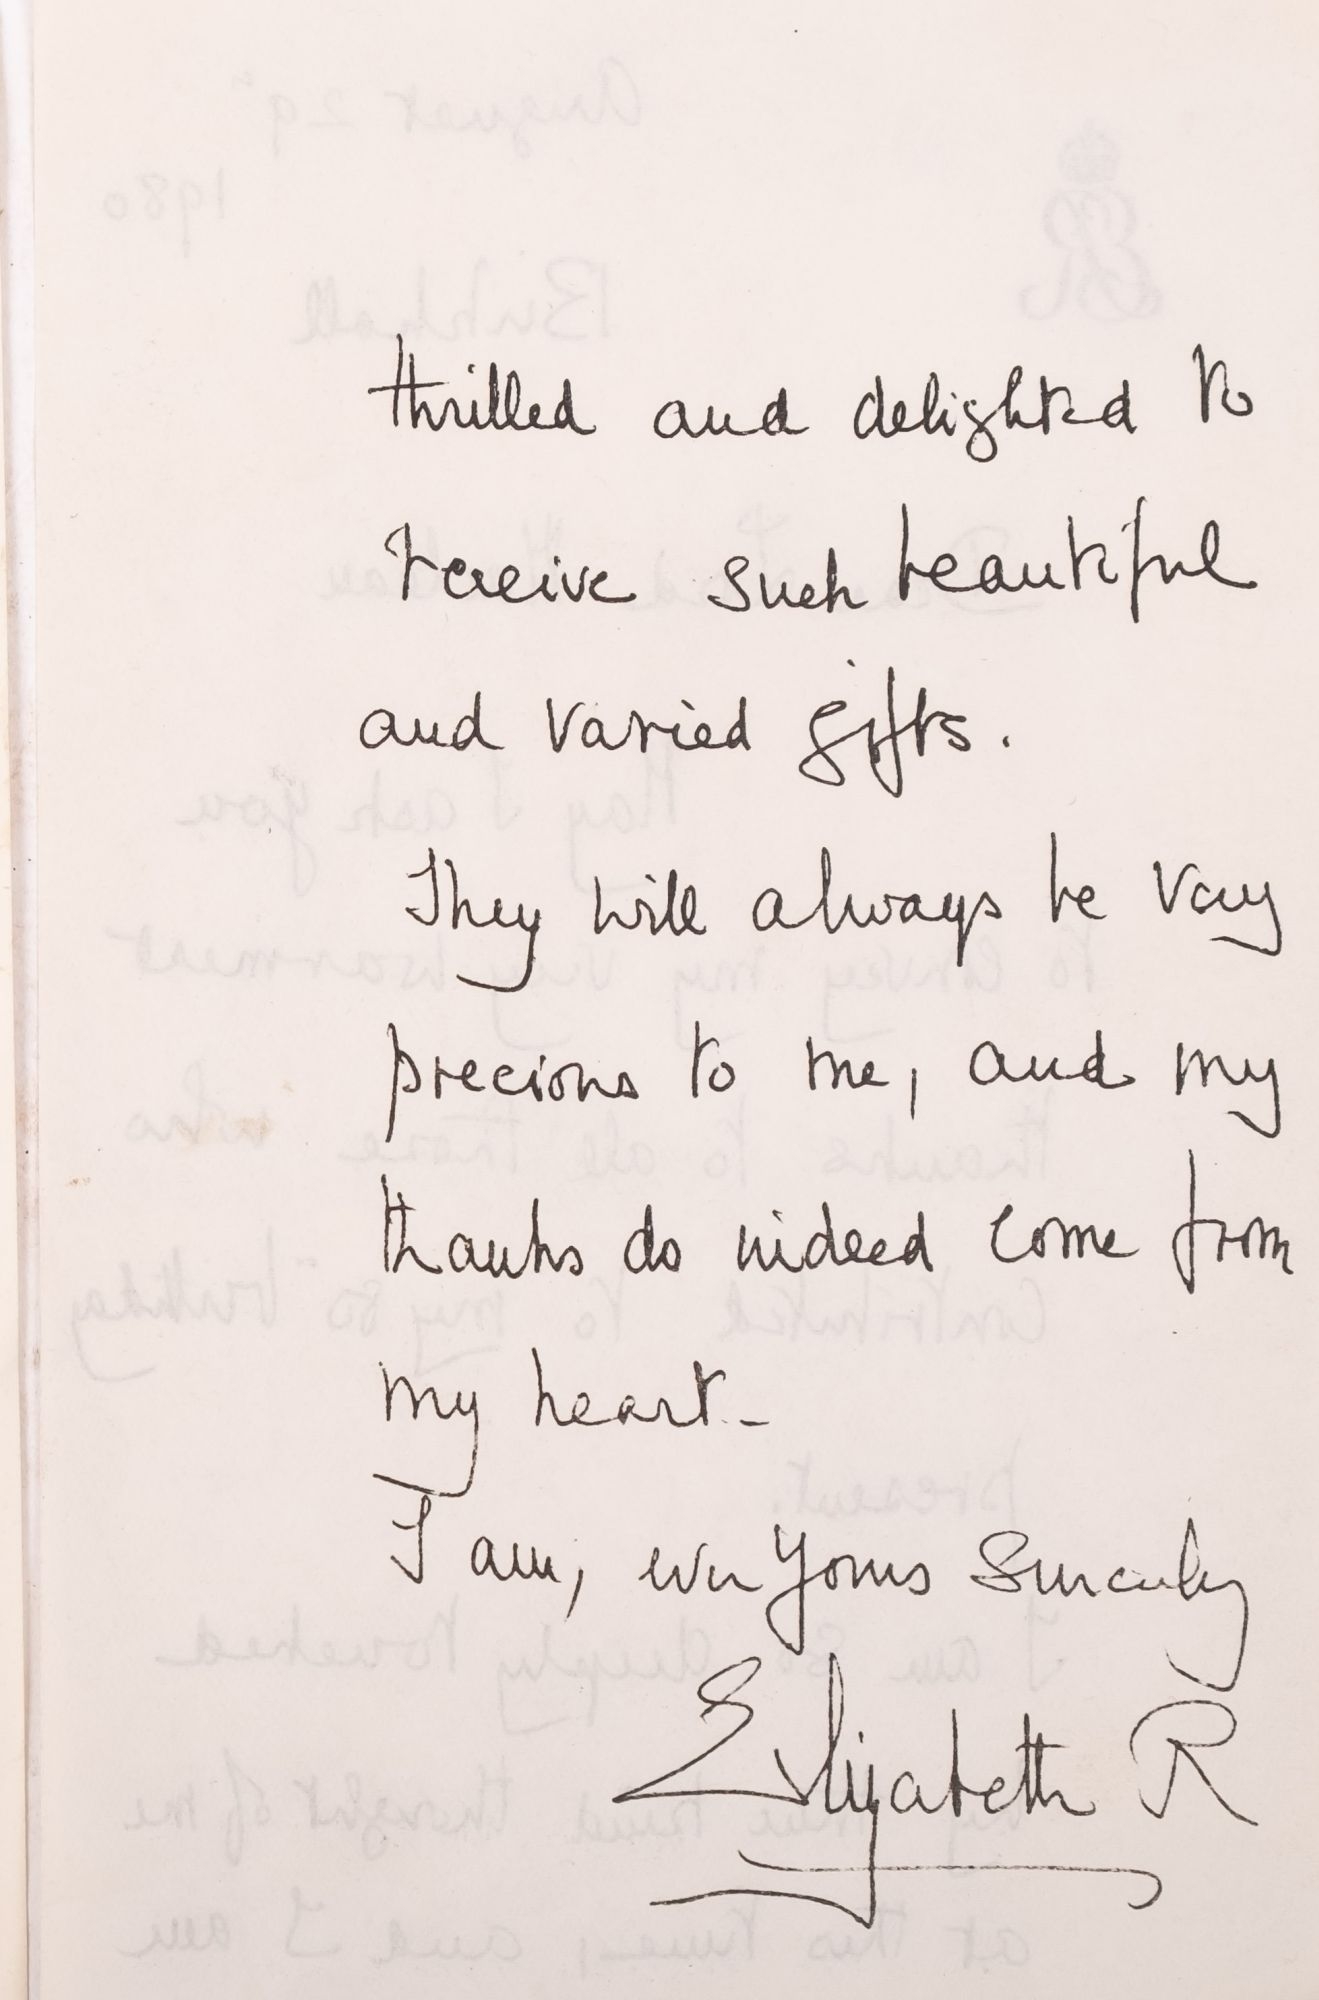 thrilled and delighted to
receive such beautiful
and varied gifts.
They will always be very
precious to me, and my
thanks do indeed come from
my heart_
I am, ever yours sincerely
Elizabeth R